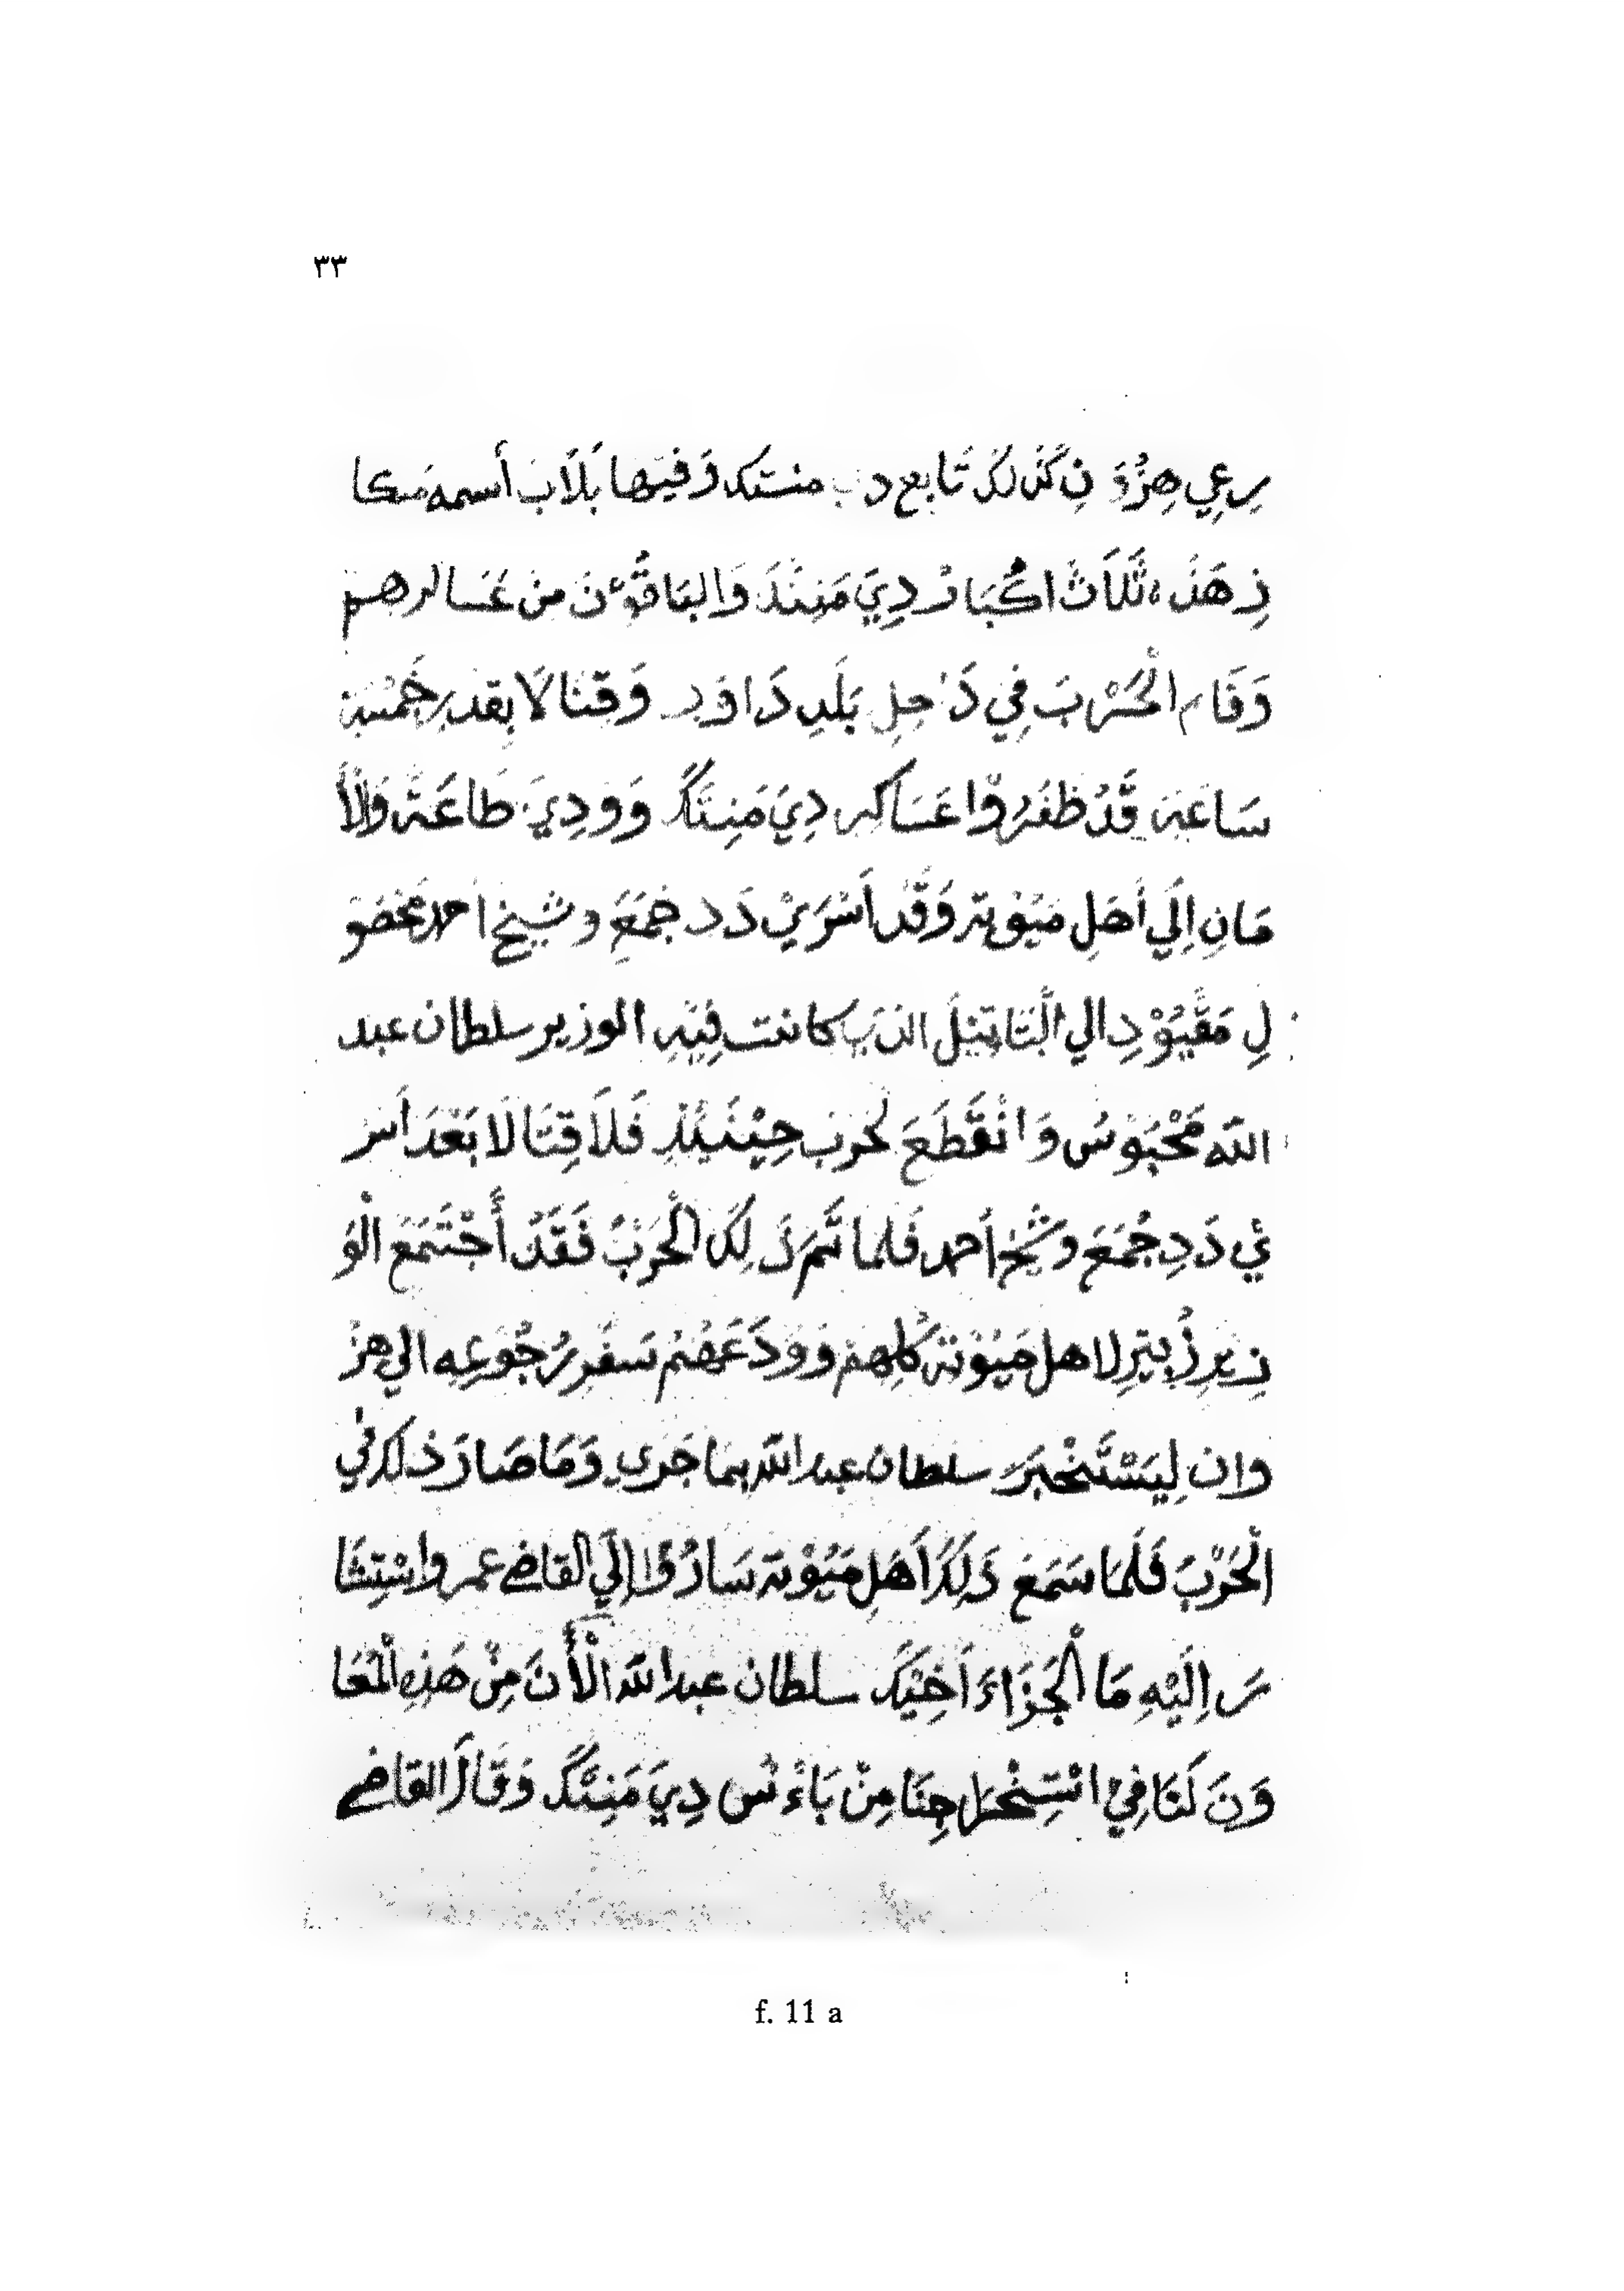 ٣٣
رِعِي هِزْوَ نِ كَذَلِكَ تَابع دي منتك وَفيها بَلَابَ أسمه مكا
زِ هَذِه ثَلَاثَ اكُبَارْ دِيَ مَنِنَدَ وَالبَاقُوْنَ مِنْ عَسَاكرهم
وَقَام الْحَرْبَ فِي دَاخِلِ بَلَدِ دَاوَد وَقتَالَا بقدر خَمْسَة
سَاعَة قَدْ ظفَرُوْا عَسَاكر دِيَ مَنِتَكَ وَوَدِيَ طَاعَة وَالْأَ
مَانِ اِلَي أهَلِ مَيُوْتة وَقَد اَسْرَيْ دَدِ جُمَعَ وشيخ احمد مخضو
لِ مَقْيُوْدِ الي الْبَتَاتيْلَ الذي كانت فِيْهِ الوزير سلطان عبد
الله مَحْبَوْسُ وَانْقَطَعَ لحرب حِيْنَئِذِ فَلَا قِتَالَا بَعْدَ اَسر
ئي دَدِ جُمَعَ وشَيْخ أحمد فَلما تَمَ ذَلِكَ الْحَرَبْ فَقَدْ أَجْتَمَعَ الْوَ
زِيرِ بتِر لاهل مَيُوْتة كُلهِمْ وَوَدَعَهُمْ سَفَر رُجُوْعِه الي هنْز
وان لِيَسْتَخْبَرَ سلطان عبد الله بما جَري وَمَا صَارَ ذلك في
الْحَرْبَ فَلَمَا سَمَعَ ذَلِكَ اَهَلِ مَيُوْتة سَارُوْا اِلَي القاضي عمر واسْتِشَا
رَ اِلَيْهِ مَا الْجَزَاءَ اَخِيْكَ سلطان عبد الله الْأَنَ مِنْ هَذِهِ الْمُعَا
وَنَ لَنَا فِيْ اسْتِخْرَاجِنَا مِنْ بَاءْسُ دِيَ مَنِتَكَ وَقَالَ القاضي
f. 11 a